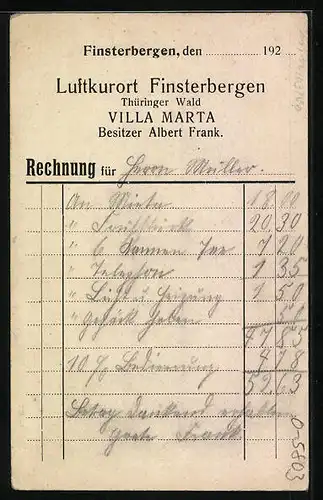 Finsterbergen, den 192
Luftkurort Finsterbergen
Thüringer Wald
VILLA MARTA
Besitzer Albert Frank.
Rechnung für Herrn Müller.
An Miete 18 00
" Frühstück 20 30
" 6 Kannen Tee 7 20
" Telephon 1 35
" Licht u Heizung 1 50
" Gepäck
47 85
10 % Bedienung 4 78
52 63
Betrag dankend erhalten
Frank
0-5803